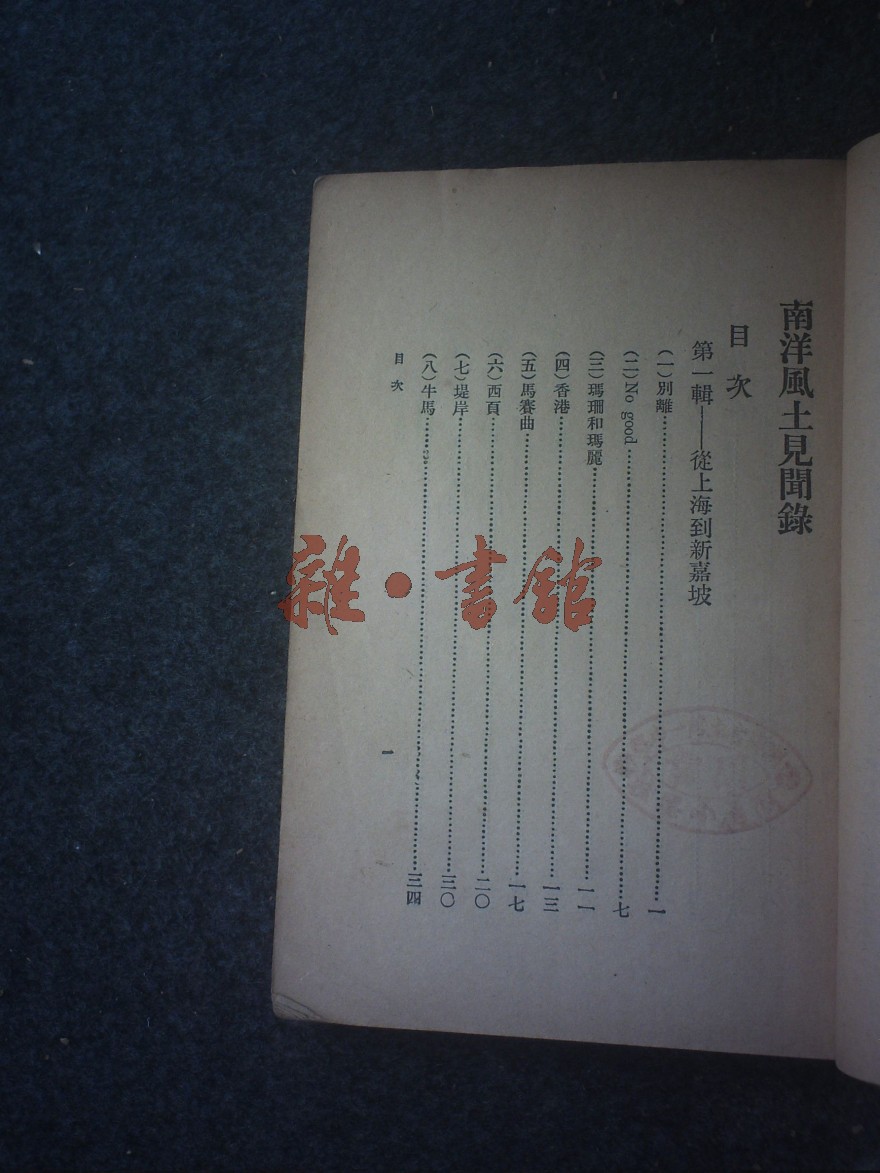 南洋風土見聞錄
目次
第一輯——從上海到新嘉坡
(一)別離……一
(二)No good……七
(三)瑪珊和瑪麗……一一
(四)香港……一三
(五)馬賽曲……一七
(六)西貢……二〇
(七)堤岸……三〇
(八)牛馬……三四
目次
一
雜·書館